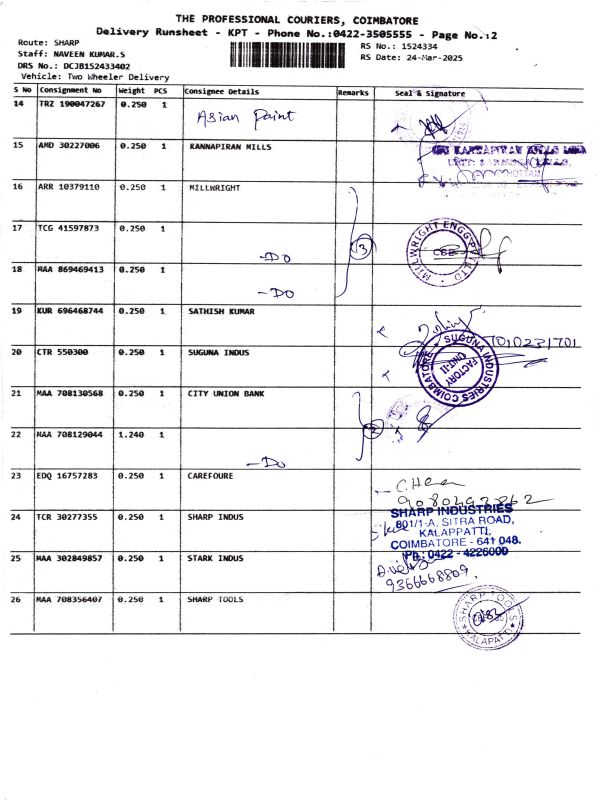 THE PROFESSIONAL COURIERS, COIMBATORE
Delivery Runsheet - KPT - Phone No.:0422-3505555 - Page No.:2
Route: SHARP
Staff: NAVEEN KUMAR.S
DRS No.: DCJB152433402
Vehicle: Two Wheeler Delivery
RS No.: 1524334
RS Date: 24-Mar-2025
S No Consignment No Weight PCS Consignee Details Remarks Seal & Signature
14 TRZ 190047267 0.250 1 Asian Paint
15 AMD 30227006 0.250 1 KANNAPIRAN MILLS
16 ARR 10379110 0.250 1 MILLWRIGHT
17 TCG 41597873 0.250 1 -DO
3
MILLWRIGHT ENGG PVT LTD
CBE
18 MAA 869469413 0.250 1 -DO
19 KUR 696468744 0.250 1 SATHISH KUMAR
20 CTR 550300 0.250 1 SUGUNA INDUS
SUGUNA INDUSTRIES COIMBATORE
FACTORY
UNIT-II
21 MAA 708130568 0.250 1 CITY UNION BANK
2
22 MAA 708129044 1.240 1 -DO
23 EDQ 16757283 0.250 1 CAREFOURE
24 TCR 30277355 0.250 1 SHARP INDUS
SHARP INDUSTRIES
801/1-A, SITRA ROAD,
KALAPPATTI,
COIMBATORE - 641 048.
Ph : 0422 - 4226000
25 MAA 302849857 0.250 1 STARK INDUS
9366668809
26 MAA 708356407 0.250 1 SHARP TOOLS
SHARP TOOLS
KALAPATTI